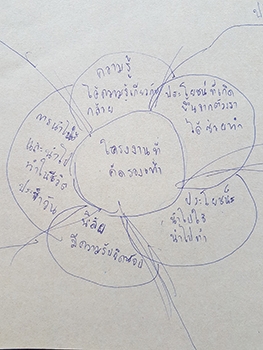 ป
ความรู้
ได้ความรู้เกี่ยวกับ
กล้วย
ประโยชน์ที่เกิด
ขึ้นจากตัวเรา
ได้
ทำ
โครงงานที่
การนำไปใช้
และนำไป
ทำในชีวิต
ประจำวัน
นิสัย
มีความรับผิดชอบ
ประโยชน์
นำไปใช้
นำไปทำ